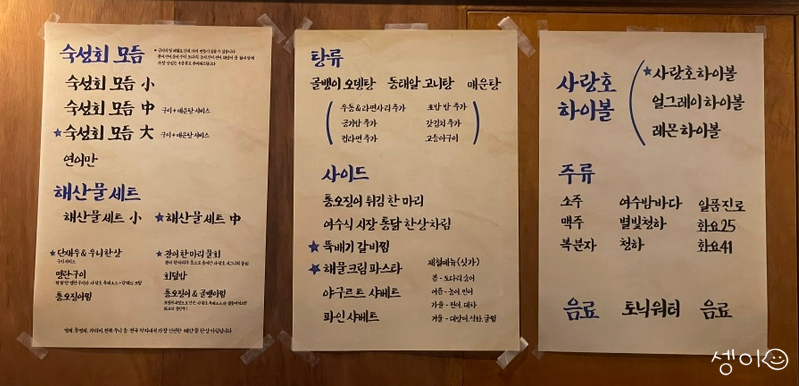 숙성회 모듬
숙성회 모듬 小
숙성회 모듬 中 구이+매운탕 서비스
★숙성회 모듬 大 구이+매운탕 서비스
연어만
해산물 세트
해산물 세트 小 ★해산물 세트 中
★단새우&우니한상
구이 서비스
명란구이
통오징어찜
★광어 한마리 물회
회덮밥
통오징어&골뱅이찜
탕류
골뱅이 오뎅탕 동태알 고니탕 매운탕
우동&라면사리 추가 초밥 밥 추가
공기밥 추가 갓김치 추가
컵라면 추가 고등어구이
사이드
통오징어 튀김 한 마리
여수식 시장 통닭 한상차림
★뚝배기 갈비찜
★해물크림 파스타
야구르트 샤베트
파인 샤베트
제철메뉴(싯가)
봄 - 도다리, 숭어
여름 - 농어, 민어
가을 - 전어, 대하
겨울 - 대방어, 석화, 굴찜
사랑호
하이볼
★사랑호 하이볼
얼그레이 하이볼
레몬 하이볼
주류
소주 여수밤바다 일품진로
맥주 별빛청하 화요25
복분자 청하 화요41
음료 토닉워터 음료
셍이